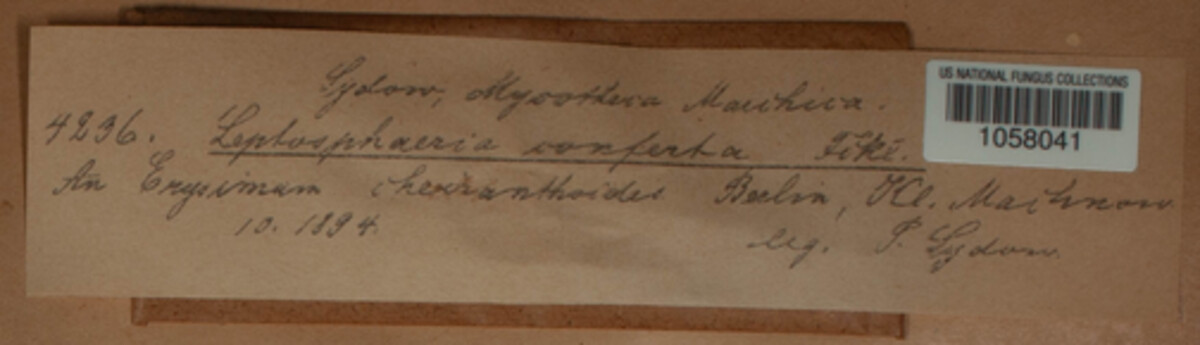 Sydow, Mycotheca Marchica.
4236. Leptosphaeria conferta
An Erysimum cheiranthoides Berlin, Kl. Machnow
10. 1894. leg. P. Sydow.
US NATIONAL FUNGUS COLLECTIONS
1058041